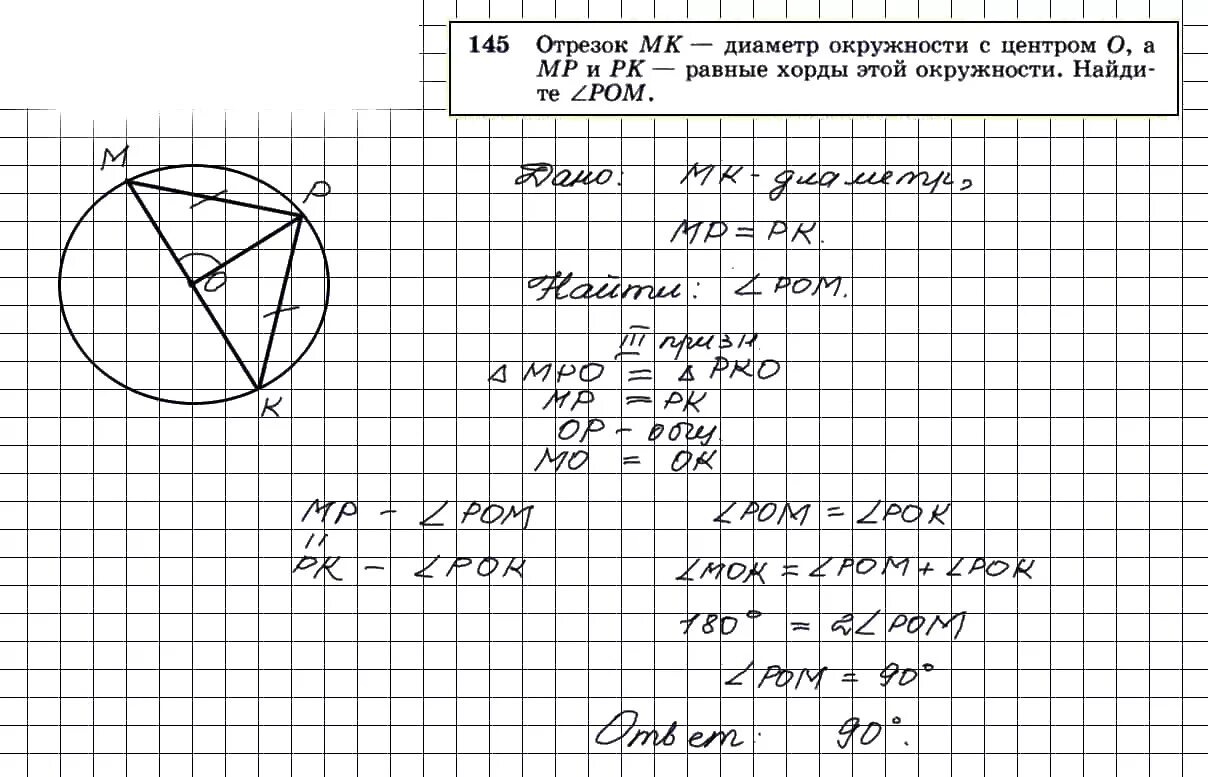 145 Отрезок MK — диаметр окружности с центром O, а
MP и PK — равные хорды этой окружности. Найди-
те ∠POM.
M
P
O
K
Дано: MK - диаметр,
MP = PK.
Найти: ∠POM.
III призн.
△ MPO = △ PKO
MP = PK
OP - общ.
MO = OK
MP - ∠POM
=
PK - ∠POK
∠POM = ∠POK
∠MOK = ∠POM + ∠POK
180° = 2∠POM
∠POM = 90°
Ответ: 90°.